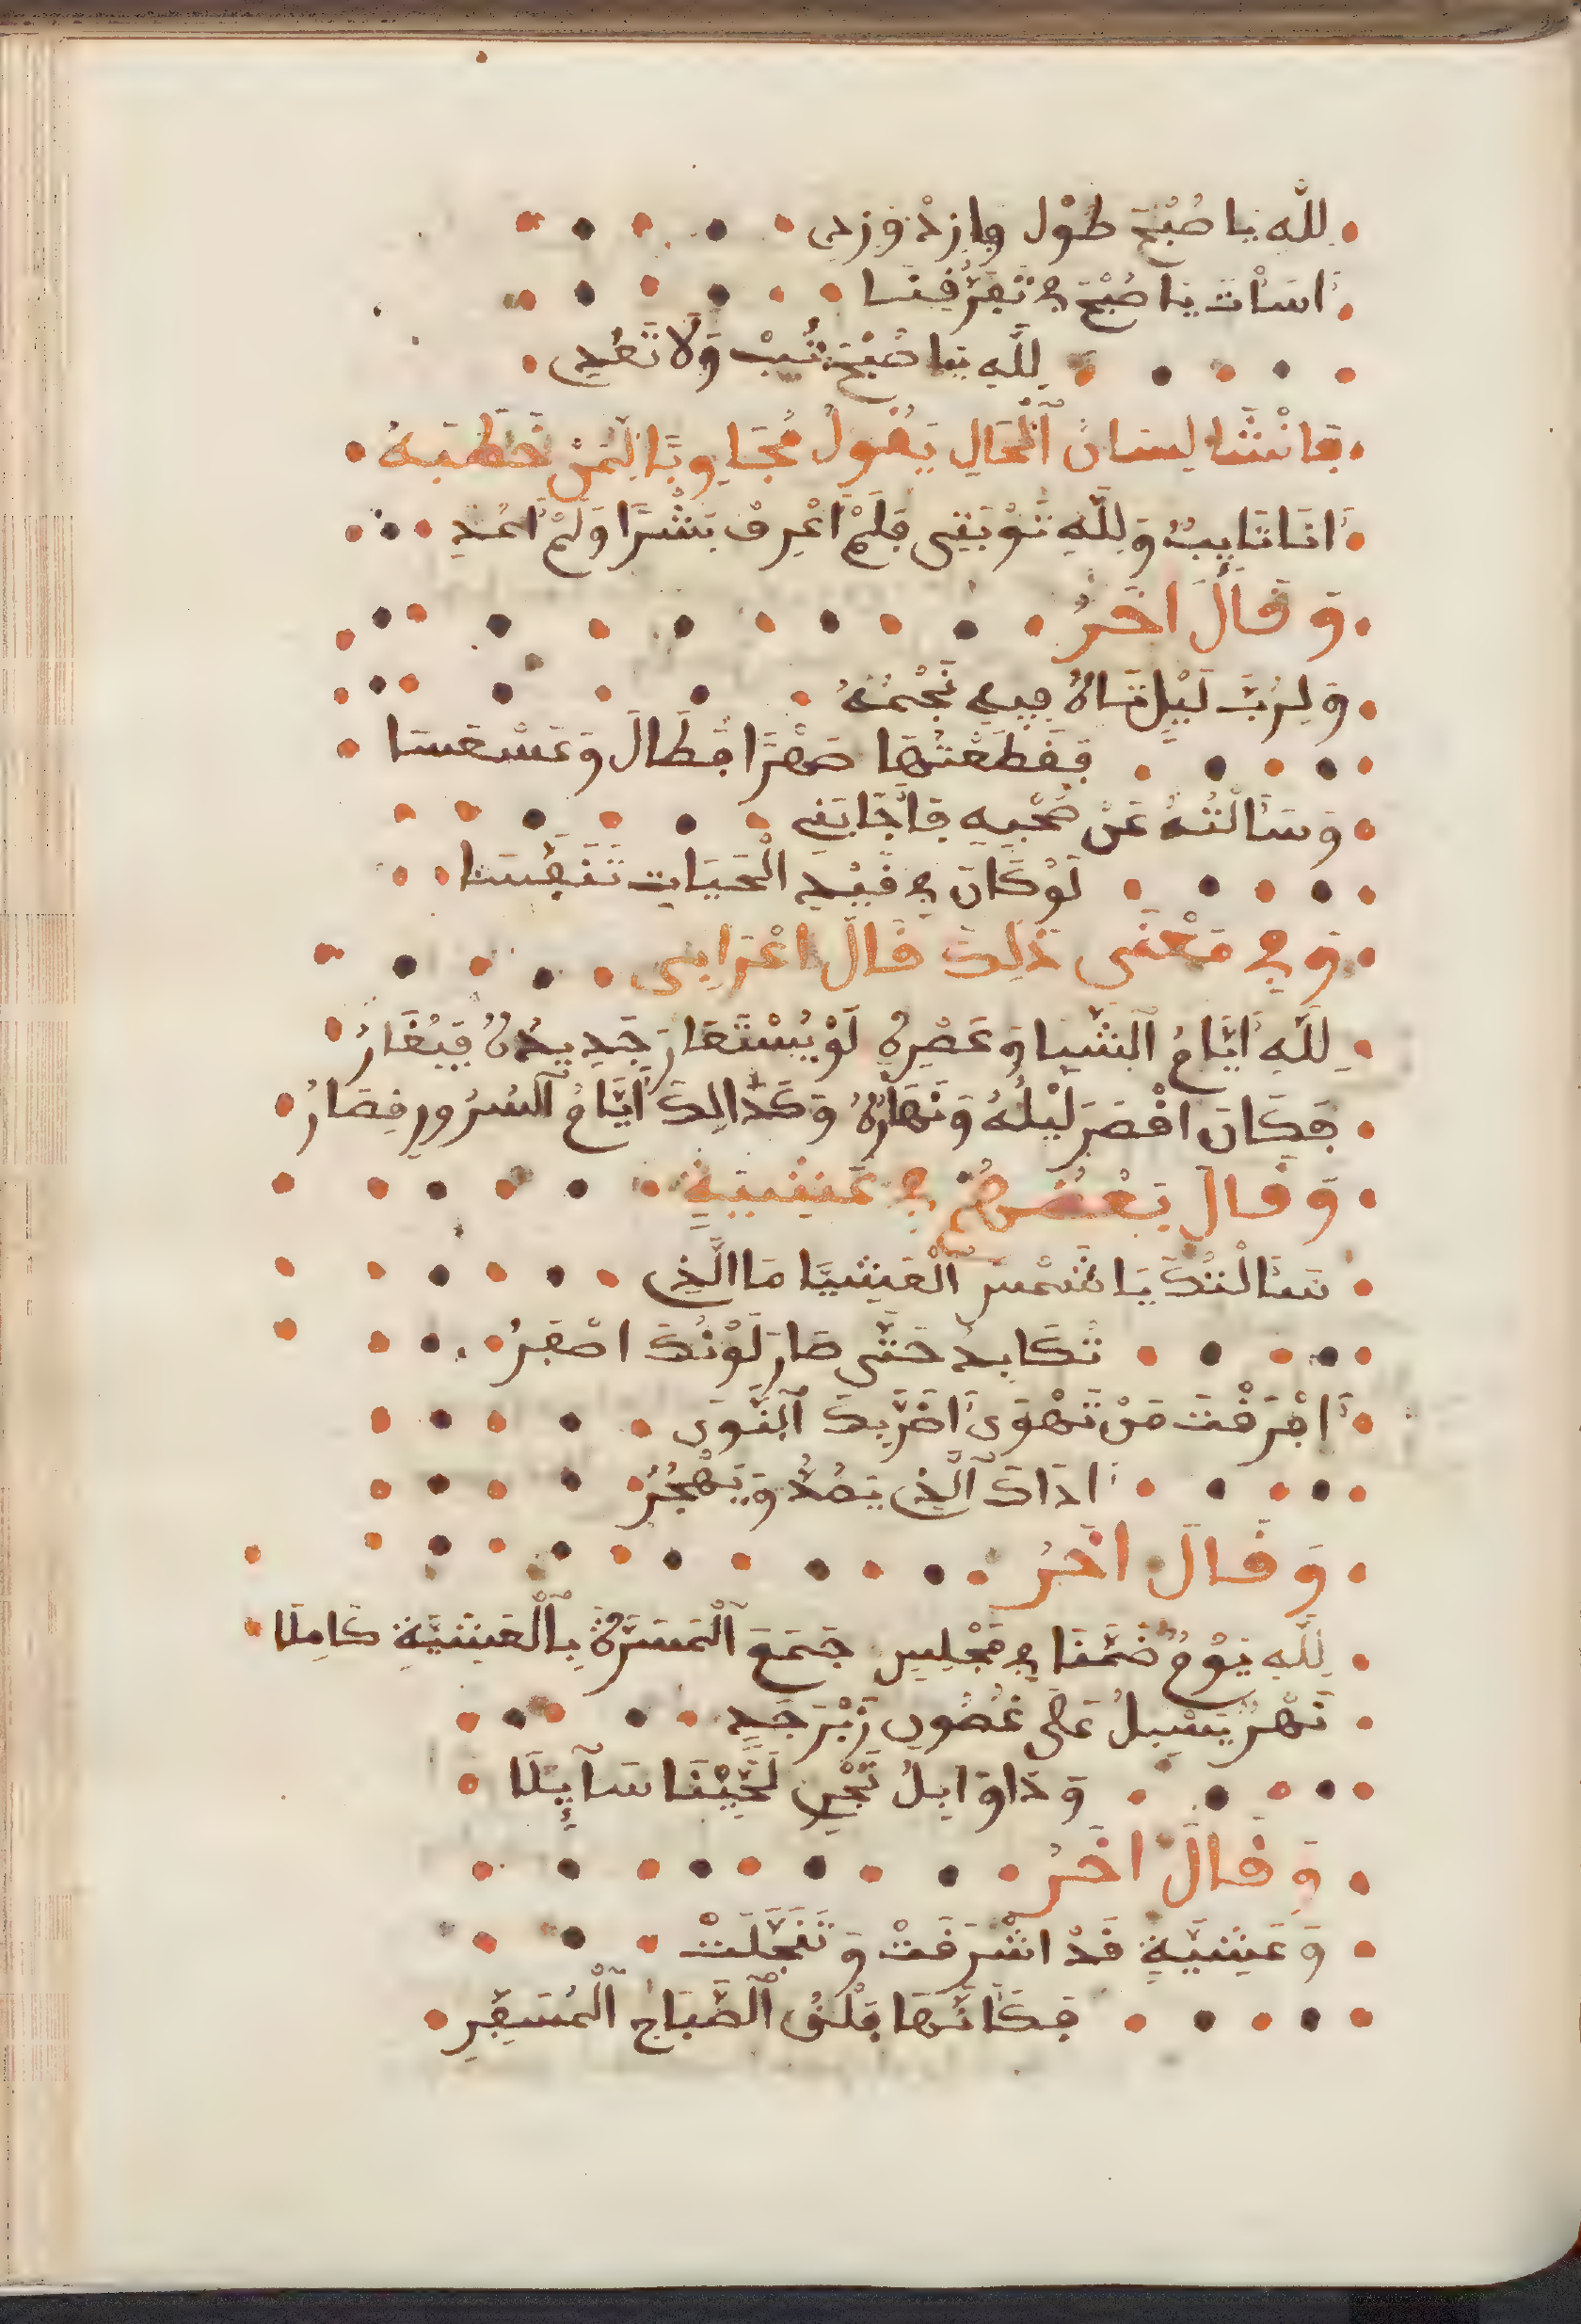 لله يا صُبْحَ طُوْل وازِدْ وَزِدِ
أَسَأْتَ يَا صُبْحَ في تَفَرُّفِنَا
لِلَّهِ يَا صُبْحَ تُبْ وَلَا تَعُدِ
فَانْشَا لِسَانُ ٱلْحَالِ يَقُولُ مُجَاوِبًا لِمَنْ خَطَبَهُ
أَنَا تَايِبٌ وَلِلَّهِ تَوْبَتِى فَلَمْ أَعْرِفْ بَشَرًا وَلَمْ أَعُدِ
وَقَالَ اخَرُ
وَلَرُبَّ لَيْلٍ تَاهُ فِيهِ نَجْمُهُ
فَقَطَعْتُهَا صَهْرًا فَطَالَ وَعَسْعَسَا
وَسَأَلْتُهُ عَنْ صُبْحِهِ فَأَجَابَنِي
لَوْ كَانَ في قَيْدِ الْحَيَاتِ تَنَفَّسَا
وَفي مَعْنَى ذَلِكَ قَالَ اعْرَابِى
لِلَّهِ أَيَّامُ ٱلشَّبَا وَعَصْرِهِ لَوْ يُسْتَعَارَ جَدِيدُهُ فَيُعَارُ
فَكَانَ اقْصَرَ لَيْلُهُ وَنَهَارُهُ وَكَذَالِكَ أَيَّامُ ٱلسُرُورِ قِصَارُ
وَقَالَ بَعْضُهُمْ في عَشِيَّةٍ
سَأَلْتُكَ يَا شَمْسَ ٱلْعَشِيَّا مَا الَّذِي
تُكَابِدُ حَتَّى صَارَ لَوْنُكَ اصْفَرُ
أَفَرَقْتَ مَنْ تَهْوَى أَضَرَّبِكَ ٱلنَّوَى
أَذَاكَ ٱلَّذِي يَصُدُّ وَيَهْجُرُ
وَقَالَ اخَرُ
لِلَّهِ يَوْمٌ ضَمَّنَا في مَجْلِسٍ جَمَعَ ٱلْمَسَرَّةَ بِٱلْعَشِيَّةِ كَامِلَا
نَهْرٌ يَسِيلُ عَلَى غُصُونِ زَبْرَجَدٍ
وَذَاوَابِلُ تَجْرِي لُجَيْنَا سَآيِلَا
وَقَالَ اخَرُ
وَعَشِيَّةٍ قَدْ اشْرَقَتْ وَتَجَلَّتْ
فَكَأَنَّهَا فَلَقُ ٱلصَّبَاحِ ٱلْمُسَفِرِ